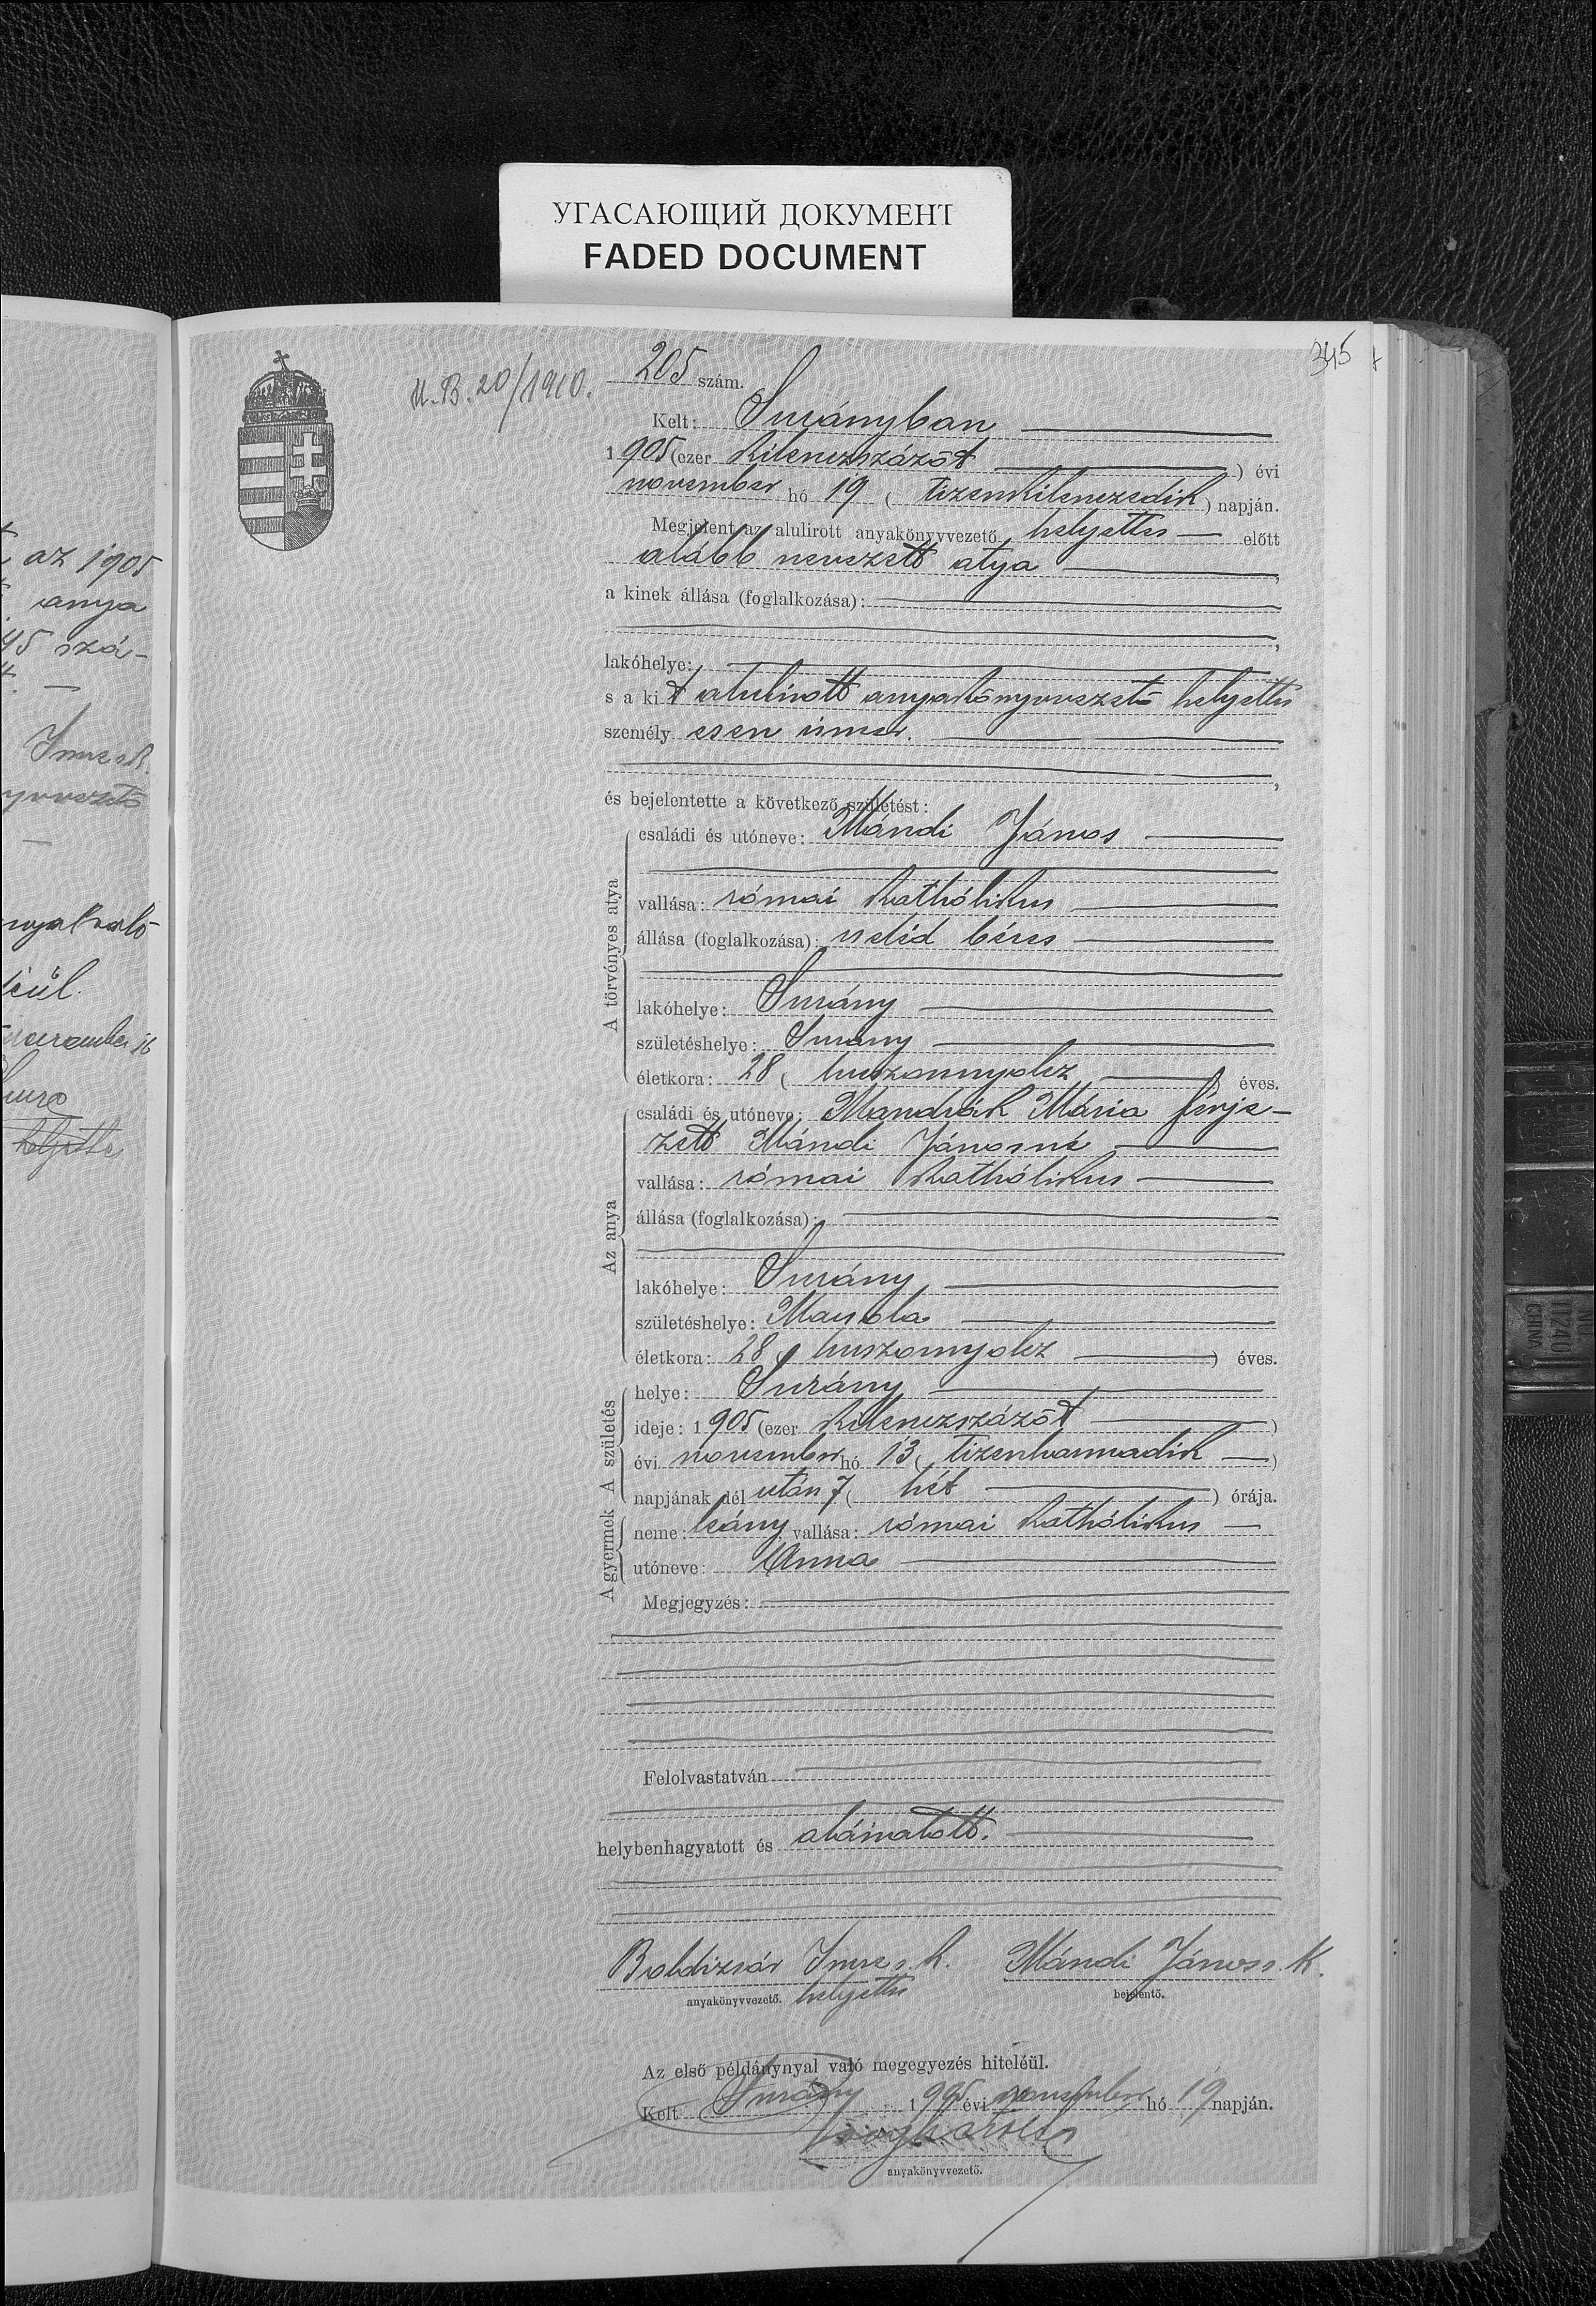 УГАСАЮЩИЙ ДОКУМЕНТ
FADED DOCUMENT
345
U. B. 20/1910.
205 szám.
Kelt: Surányban
1905 (ezer kilenczszázöt) évi
november hó 19 (tizenkilenczedik) napján.
Megjelent az alulirott anyakönyvvezető helyettes előtt
alább nevezett atya,
a kinek állása (foglalkozása):
lakóhelye:
s a kit alulirott anyakönyvvezető helyettes
személyesen ismer.
és bejelentette a következő születést:
A törvényes atya
családi és utóneve: Mándi János
vallása: római kathólikus
állása (foglalkozása): béres
lakóhelye: Surány
születéshelye: Surány
életkora: 28 (huszonnyolcz) éves.
Az anya
családi és utóneve: Mandrák Mária férje-
zett Mándi Jánosné
vallása: római kathólikus
állása (foglalkozása):
lakóhelye: Surány
születéshelye:
életkora: 28 (huszonnyolcz) éves.
A születés
helye: Surány
ideje: 1905 (ezer kilenczszázöt)
évi november hó 13 (tizenharmadik)
napjának dél után 7 (hét) órája.
A gyermek
neme: leány vallása: római kathólikus
utóneve: Anna
Megjegyzés:
Felolvastatván
helybenhagyatott és aláiratott.
Boldizsár Imre s. k. Mándi János s. k.
anyakönyvvezető. helyettes bejelentő.
Az első példánynyal való megegyezés hiteléül.
Kelt Surány 1905 évi november hó 19 napján.
anyakönyvvezető.
az 1905
anya
45 szá-
Imre s k.
yvvezető
nyal való
léül.
16
Imre
helyettes